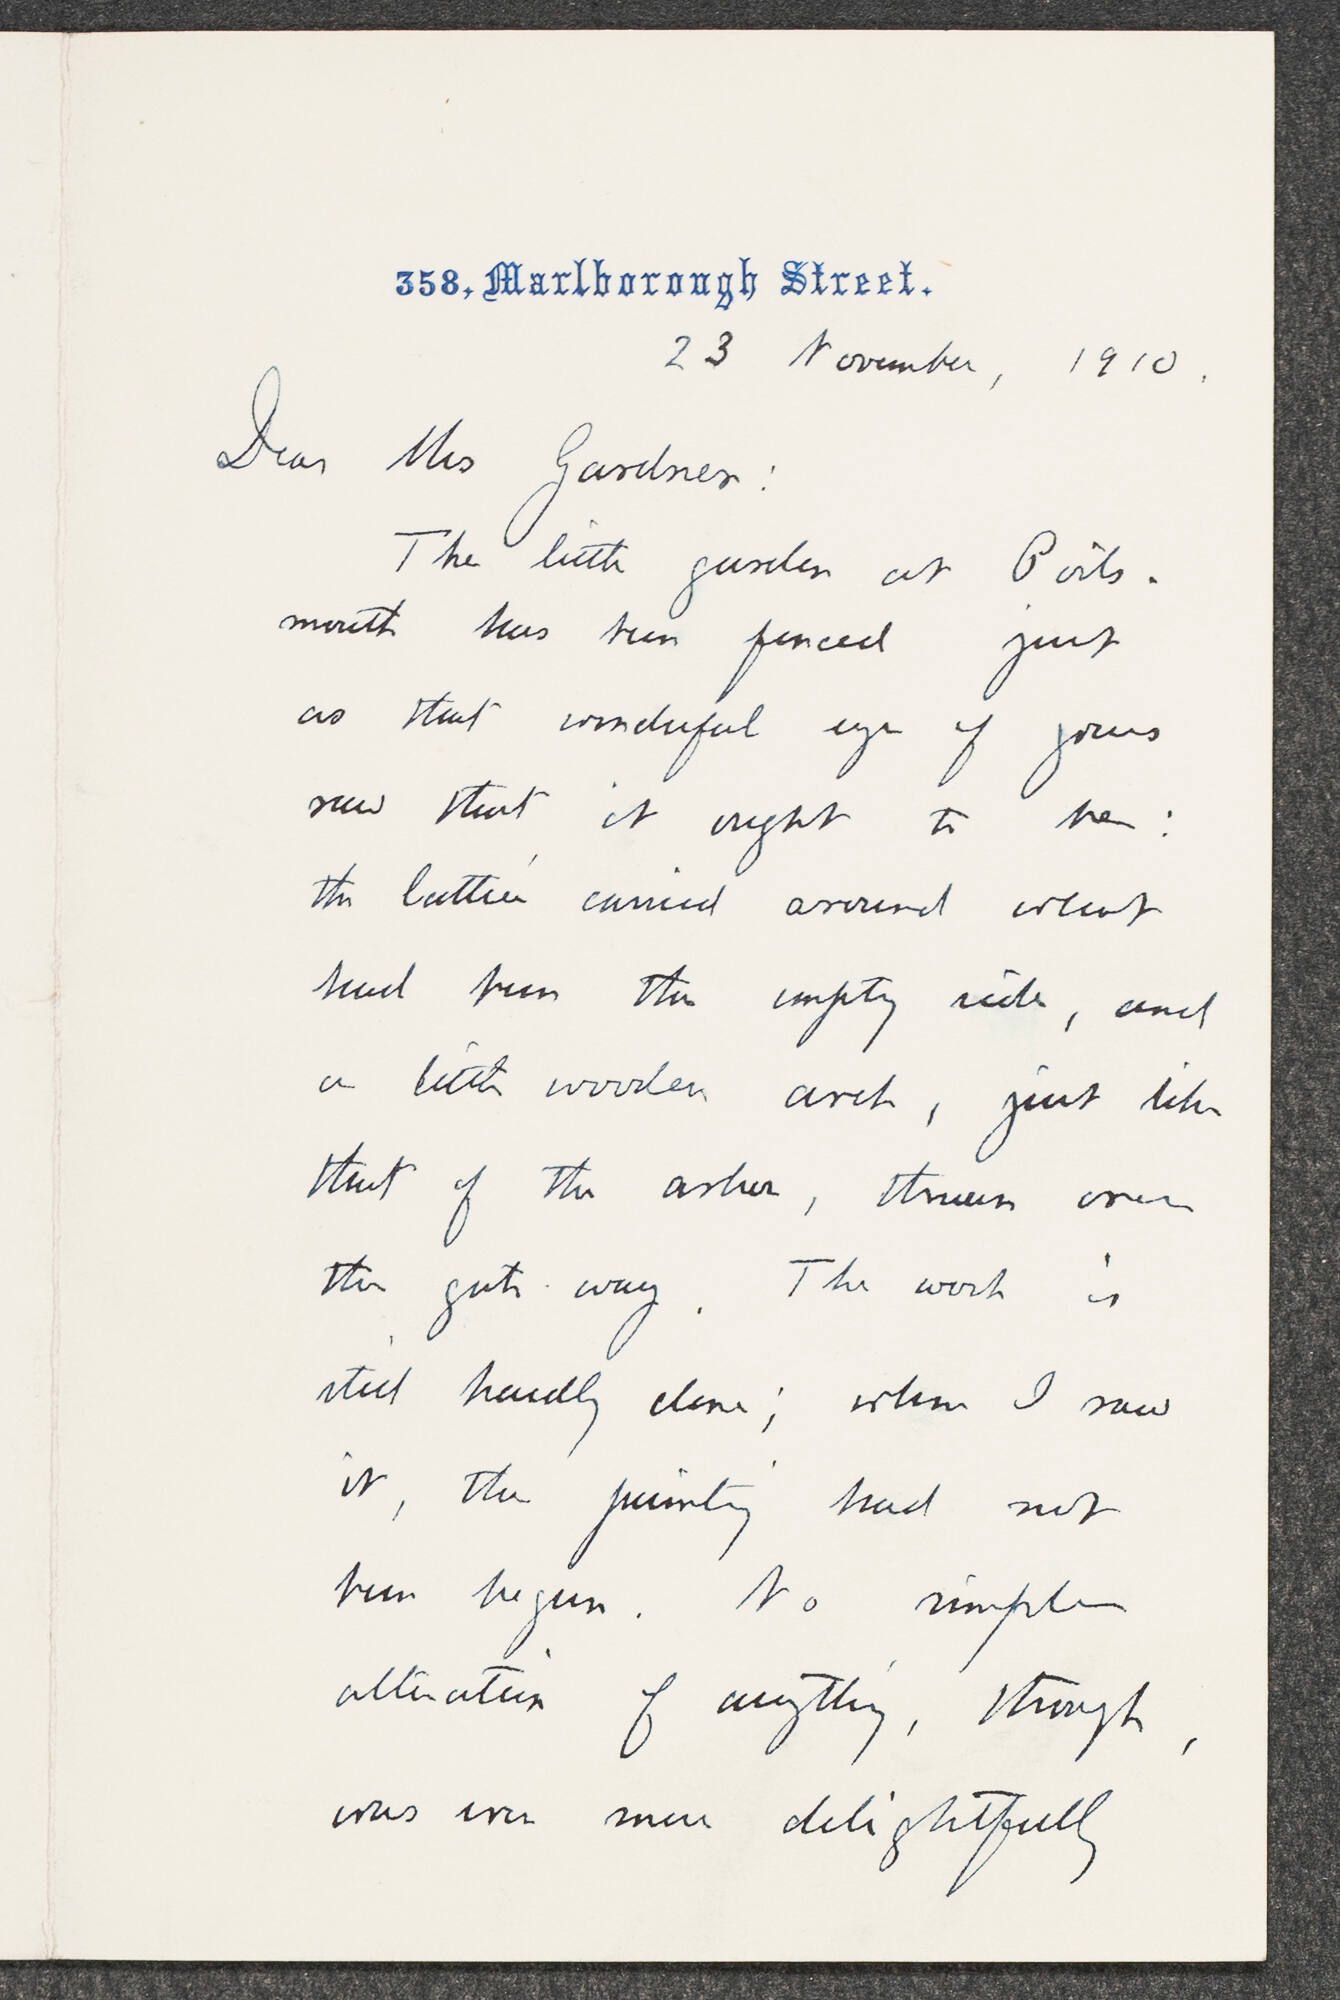 358, Marlborough Street.
23 November, 1910.
Dear Mrs Gardner:
The little garden at Ports-
mouth has been fenced just
as that wonderful eye of yours
saw that it ought to be:
the lattice carried around what
had been the empty side, and
a little wooden arch, just like
that of the arbor, thrown over
the gate-way. The work is
still hardly done; when I saw
it, the painting had not
been begun. No simple
alteration of anything, though,
was ever more delightfully